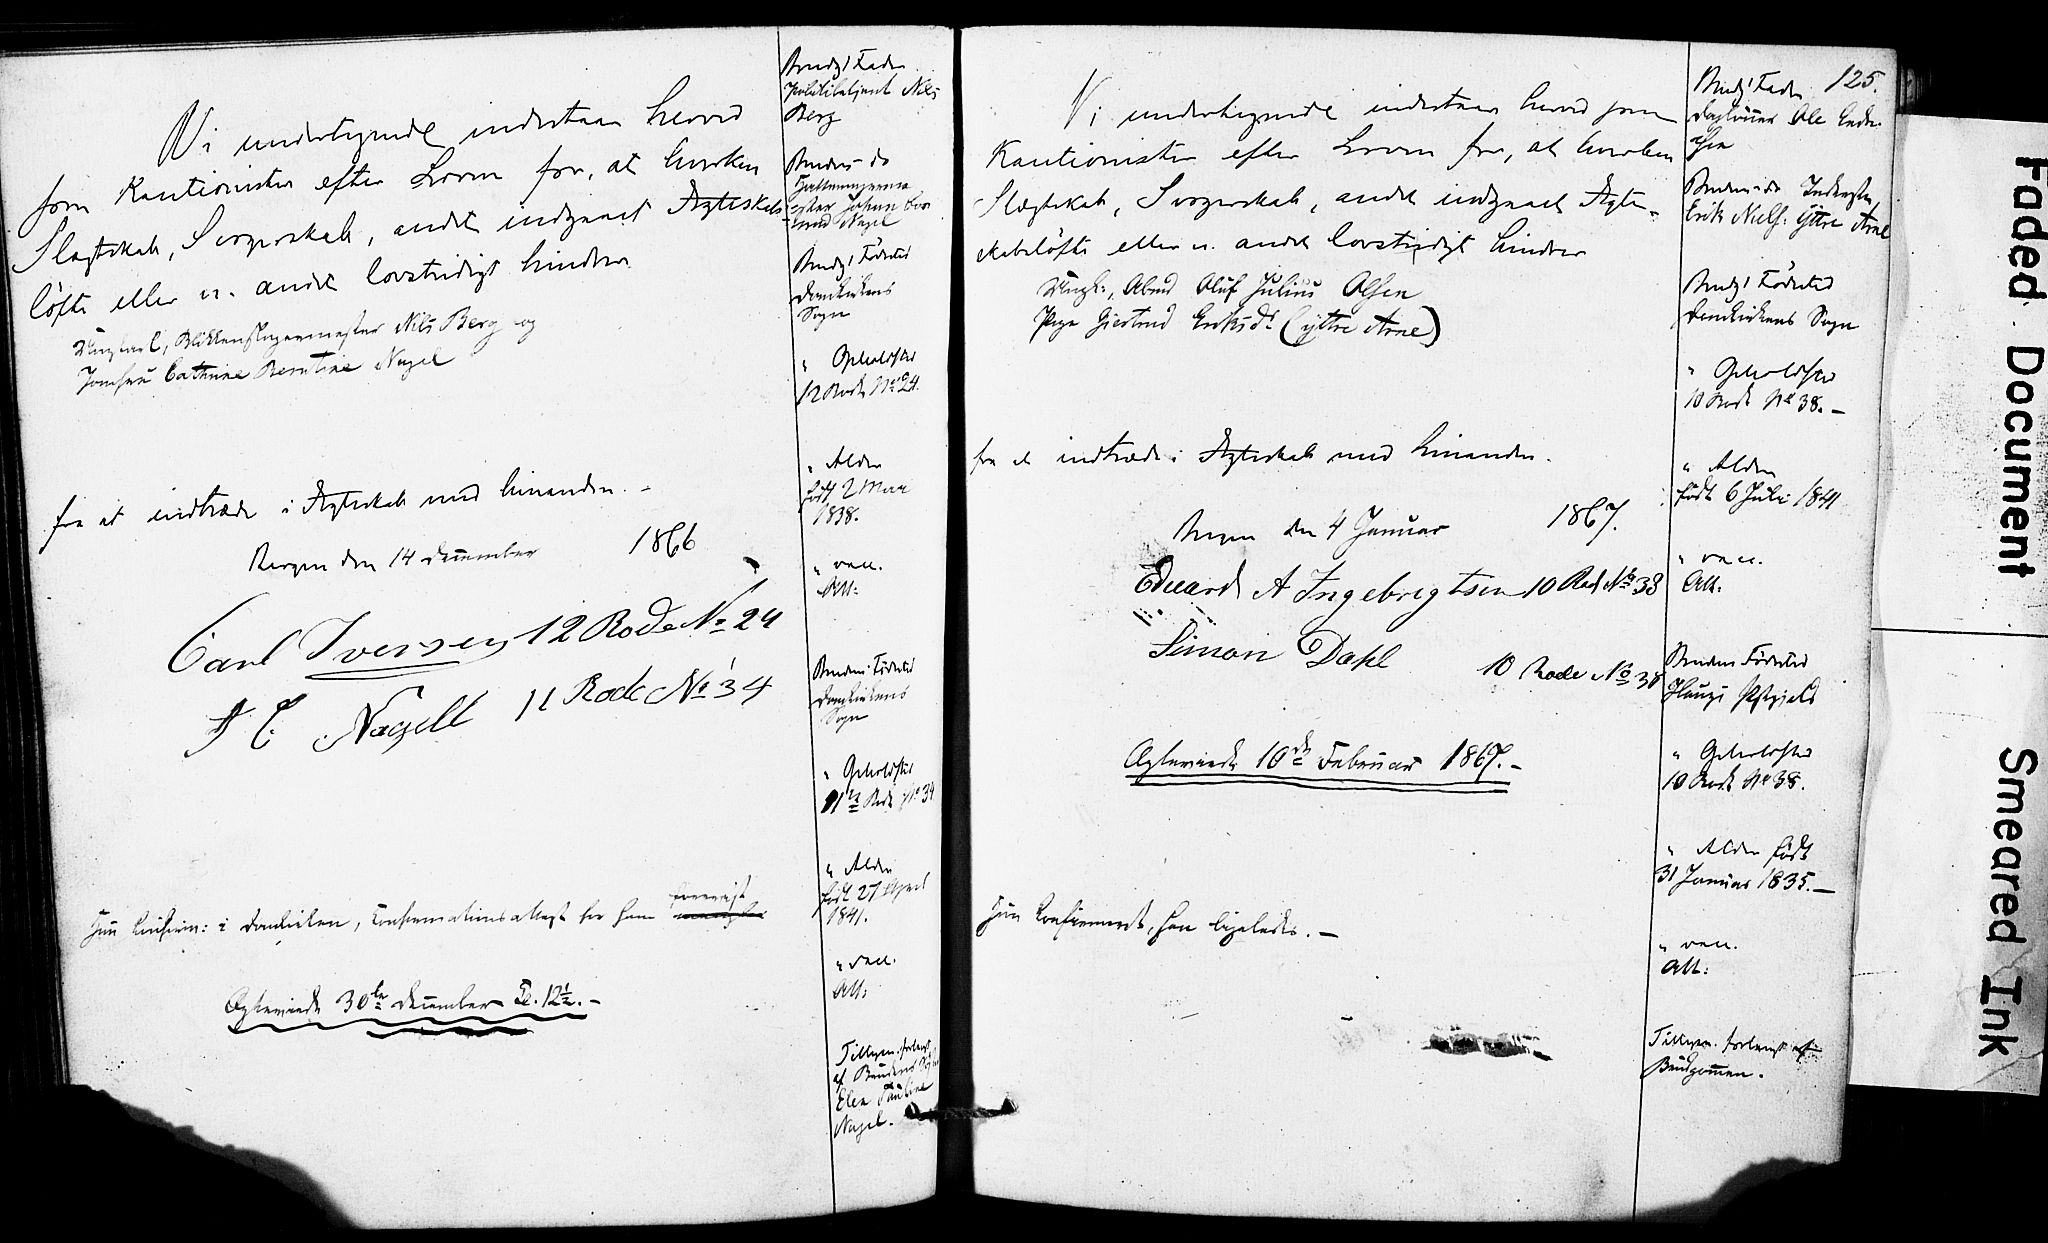 Vi undertegnede indestaae herved
som Kautionister efter Loven for, at hverken
Slægtskab, Svogerskab, andet indgaaet Ægteskabs-
løfte eller n. andet lovstridigt hinder
Ungkarl, Blikkenslagermester Nils Berg og
Jomfru Cathrine Berntine Nagel
for at indtræde i Ægteskab med hinanden. -
Bergen den 14 December 1866
Carl Iversen 12 Rode No 24
J C. Nagell 11 Rode No 34
forevist
Hun Confirm: i Domkirken, Confirmationsattest for ham
Ægteviede 30te December Kl. 12½. -
Brudg' Fader
Politibetjent Nils
Berg
Brudens do
Johan
Nagel
Brudg' Fødested
Domkirkens
Sogn
" Opholdssted
12 Rode No 24.
" Alder
født 2 Mai
1838.
" vacc.
Att:
Brudens Fødested
Domkirkens
Sogn
" Opholdssted
11te Rode No 34
" Alder
født 27 April
1841.
" vacc.
Att:
Tillysn. forlangt
af Brudens
Elen Pauline
Nagel.
125.
Vi undertegnede indestaae herved som
Kautionister efter Loven for, at hverken
Slægtskab, Svogerskab, andet indgaaet Ægte-
skabsløfte eller n. andet lovstridigt hinder
Ungk., Oluf Julius Olsen
Pige Giertrud Eriksdr (Yttre Arne)
for at indtræde i Ægteskab med hinanden.
Bergen den 4 Januar 1867.
Eduard A Ingebrigtsen 10 Rod No 38
Simon Dahl 10 Rode No 38
Ægteviede 10de Februar 1867. -
Hun Confirmeret, han ligeledes. -
Brudg' Fader
Dagleier Ole
Brudens do
Erik Niels. Yttre Arne
Brudg' Fødested
Domkirkens Sogn
" Opholdssted
10 Rode No 38. -
" Alder
født 6 Juli 1841
" vacc.
Att:
Brudens Fødested
Haugs Præstegjeld
" Opholdssted
10 Rode No 38.
" Alder født
31 Januar 1835. -
" vacc.
Att:
Tillysn. forlangt af
Brudgommen.
Faded Document
Smeared Ink